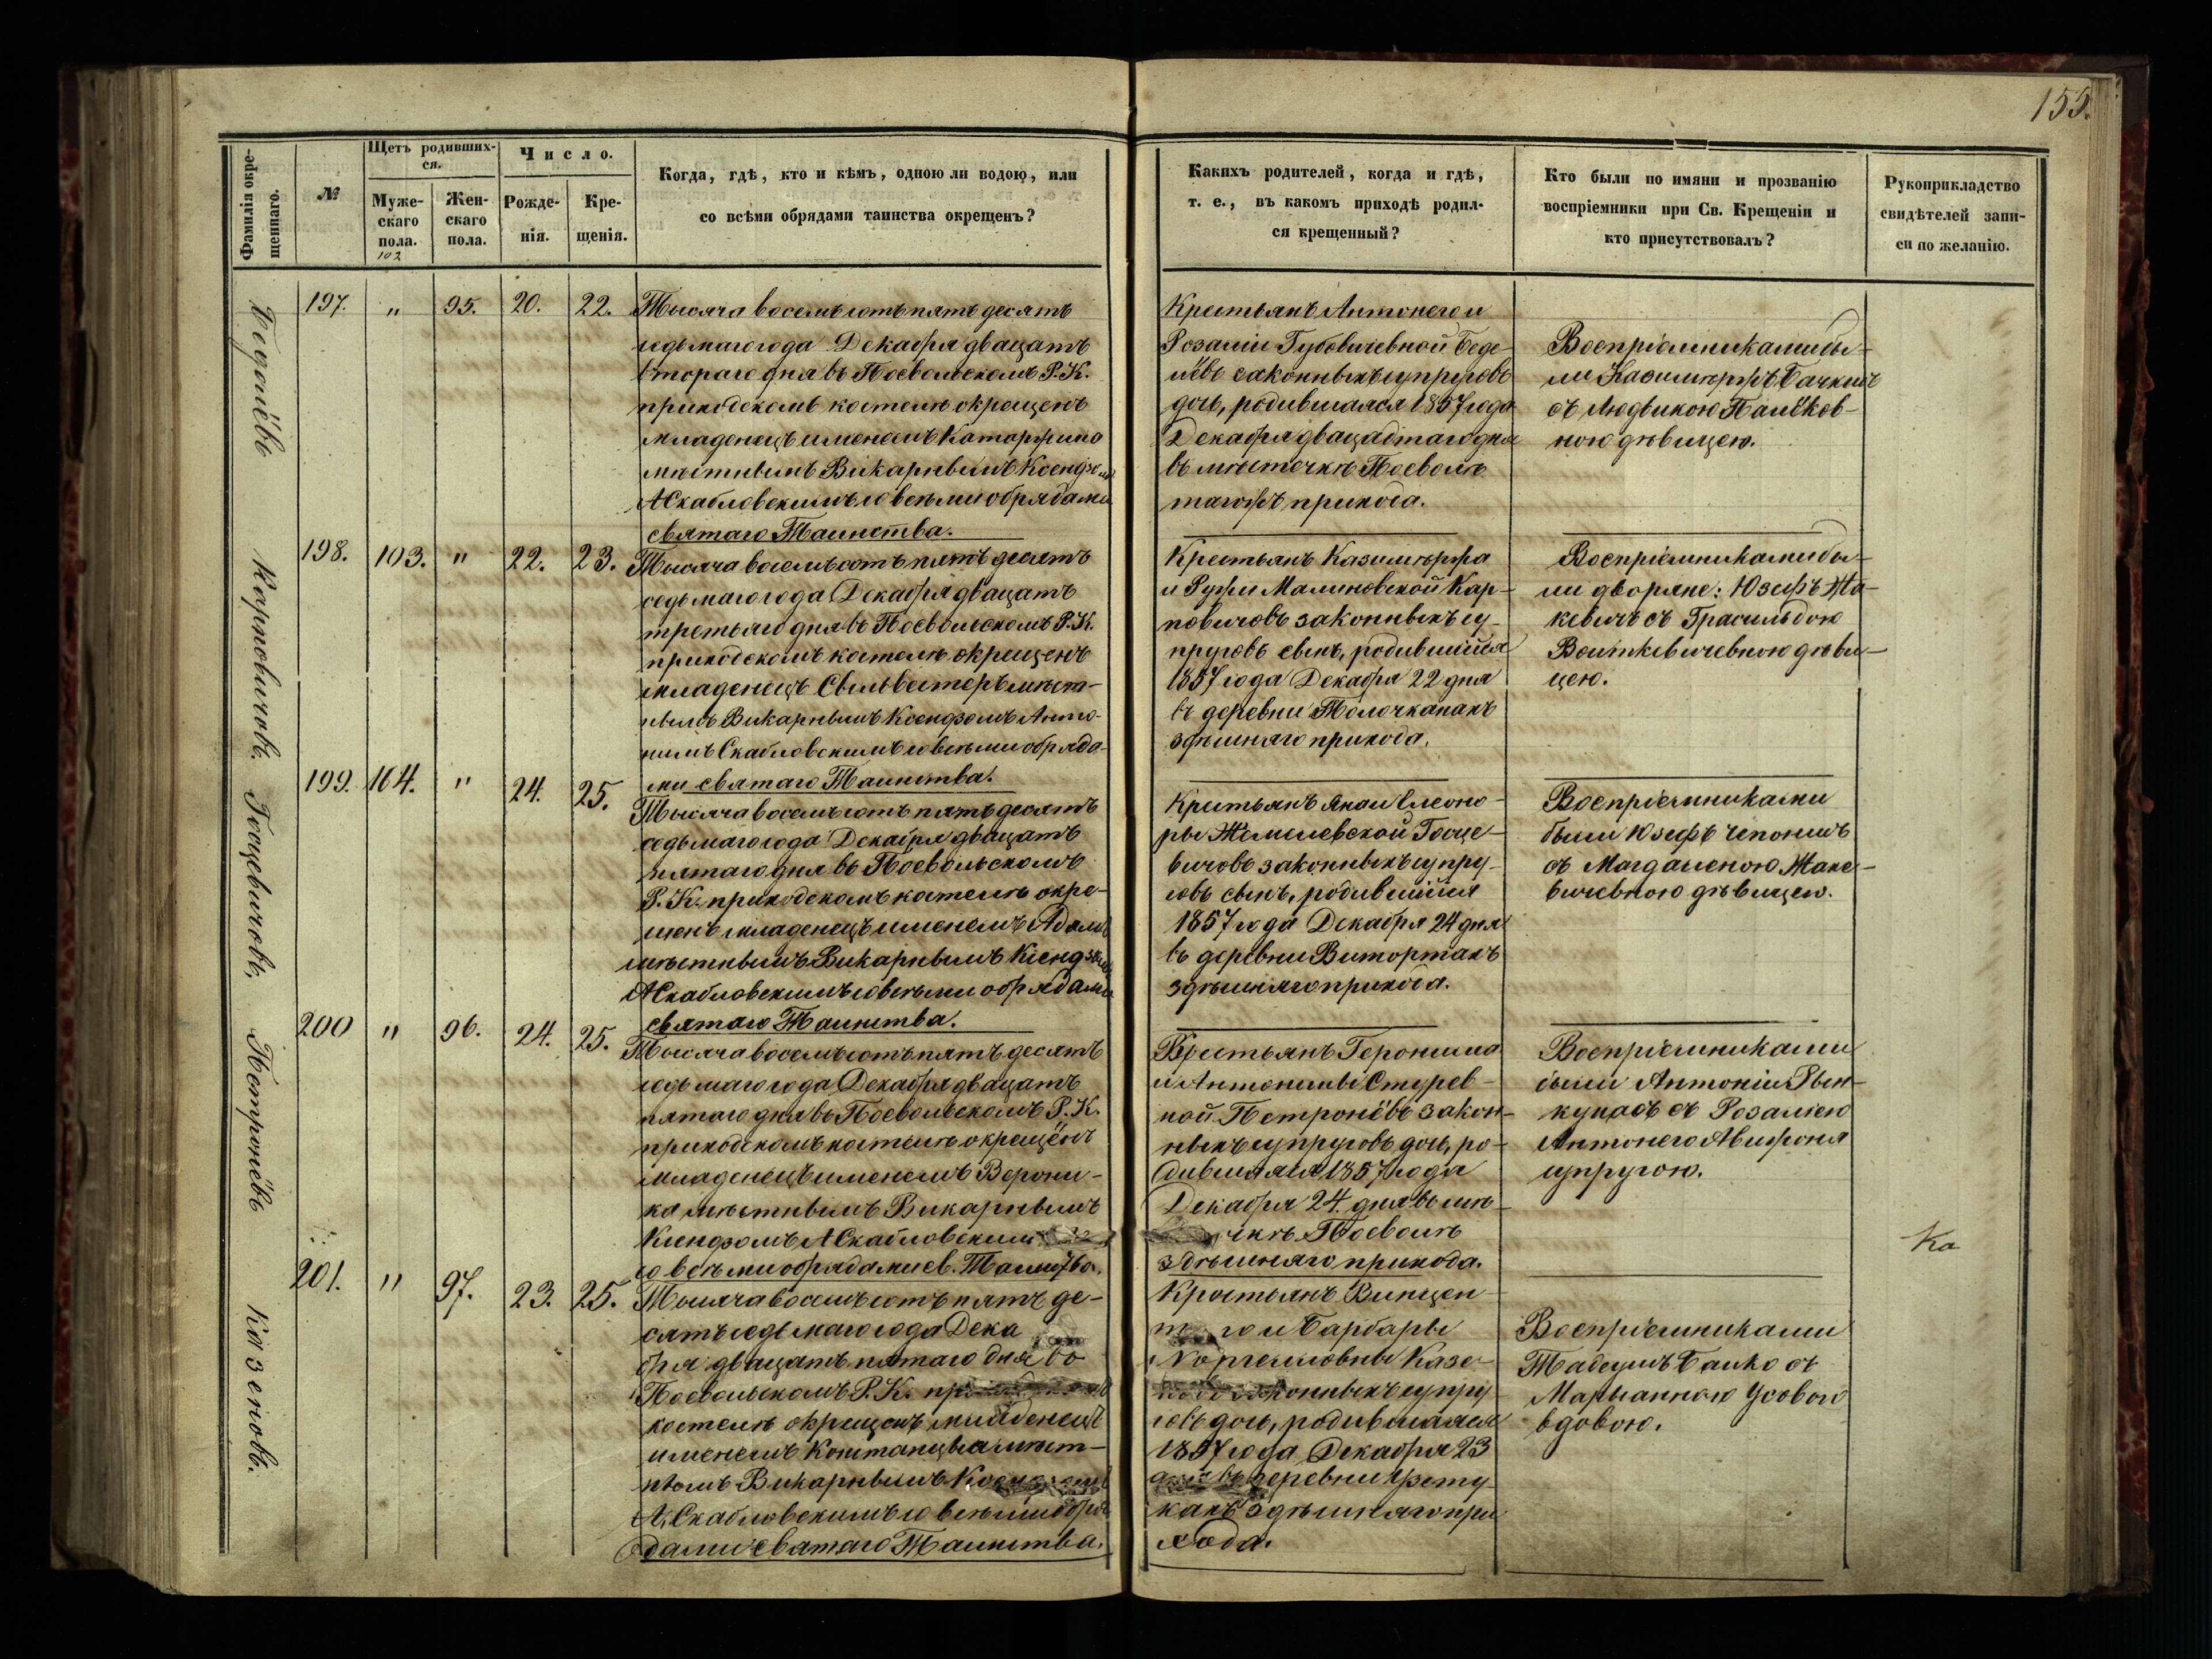 155.
Фамилія окре-
щеннаго.
№
Щетъ родивших-
ся.
Муже-
скаго
пола.
102
Жен-
скаго
пола.
Число.
Рожде-
нія.
Кре-
щенія.
Когда, гдѣ, кто и кѣмъ, одною ли водою, или
со всѣми обрядами таинства окрещенъ?
Какихъ родителей, когда и гдѣ,
т. е., въ какомъ приходѣ родил-
ся крещенный?
Кто были по имяни и прозванію
воспріемники при Св. Крещеніи и
кто присутствовалъ?
Рукоприкладство
свидѣтелей запи-
си по желанію.
197. " 95. 20. 22.
Тысяча восемьсотъ пятьдесятъ
седьмаго года Декабря двацать
втораго дня въ Поевольскомъ Р. К.
приходскомъ костелѣ окрещенъ
младенецъ именемъ Катаржина
мѣстнымъ Викарнымъ Ксендзомъ
А Скабловскимъ со всѣми обрядами
святаго Таинства.
Крестьянъ Антонего и
Розаліи Губовичевной Беде-
законныхъ супруговъ
дочь, родившаяся 1857 года
Декабря двацатаго дня
въ мѣстечкѣ Поеволѣ
тагожъ прихода.
Воспріемниками бы-
ли Казимержъ
съ Людвикою
ною дѣвицею.
Карповичовъ.
198. 103. " 22. 23.
Тысяча восемьсотъ пятьдесятъ
седьмаго года Декабря двацать
третьяго дня въ Поевольскомъ Р. К.
приходскомъ костелѣ окрещенъ
младенецъ Сыльвестеръ мѣст-
нымъ Викарнымъ Ксендзомъ Анто-
нимъ Скабловскимъ со всѣми обряда-
ми святаго Таинства.
Крестьянъ Казимержа
и Рузи Малиновской Кар-
повичовъ законныхъ су-
пруговъ сынъ, родившійся
1857 года Декабря 22 дня
въ деревни Толочканахъ
здѣшняго прихода.
Воспріемниками бы-
ли дворяне: Юзефъ Жа-
кевичъ съ Грасильдою
Войткевичевною дѣви-
цею.
Госцевичовъ,
199. 104. " 24. 25.
Тысяча восемьсотъ пятьдесятъ
седьмаго года Декабря двацать
пятаго дня въ Поевольскомъ
Р. К. приходскомъ костелѣ окре-
щенъ младенецъ именемъ Адамъ
мѣстнымъ Викарнымъ Ксендзомъ
А Скабловскимъ со всѣми обрядами
святаго Таинства.
Крестьянъ Яна и Элеоно-
ры Госце-
вичовъ законныхъ супру-
говъ сынъ, родившійся
1857 года Декабря 24 дня
въ деревни Витортахъ
здѣшняго прихода.
Воспріемниками
были Юзефъ Чепонисъ
съ Магдаленою Жаке-
вичевною дѣвицею.
Петронёвъ
200 " 96. 24. 25.
Тысяча восемьсотъ пятьдесятъ
седьмаго года Декабря двацать
пятаго дня въ Поевольскомъ Р. К.
приходскомъ костелѣ окрещёнъ
младенецъ именемъ Верони-
ка мѣстнымъ Викарнымъ
Ксендзомъ А Скабловским
со всѣми обрядами св. Таинства.
Крестьянъ Геронима
и Антонины Стурев-
ной Петронёвъ закон-
ныхъ супруговъ дочь, ро-
дившаяся 1857 года
Декабря 24. дня въ мѣ-
чкѣ Поеволѣ
здѣшняго прихода.
Воспріемниками
были Антоній Рын-
кунасъ съ Розаліею
Антонего Авижоня
супругою.
Ка
Казеновъ.
201. " 97. 23. 25.
Тысяча восемьсотъ пятьде-
сятъ седьмаго года Дека
бря двацать пятаго дня во
Поевольскомъ Р. К.
костелѣ окрещенъ младенецъ
именемъ Констанцыя мѣст-
нымъ Викарнымъ
А. Скабловскимъ со всѣми обря-
дами святаго Таинства.
Крестьянъ Винцен-
го и Барбары
Казе-
супру
говъ дочь, родившаяся
1857 года Декабря 23
деревни
кахъ здѣшняго при
хода.
Воспріемниками
Тадеушъ Банко съ
Марыанною Усовою
вдовою.